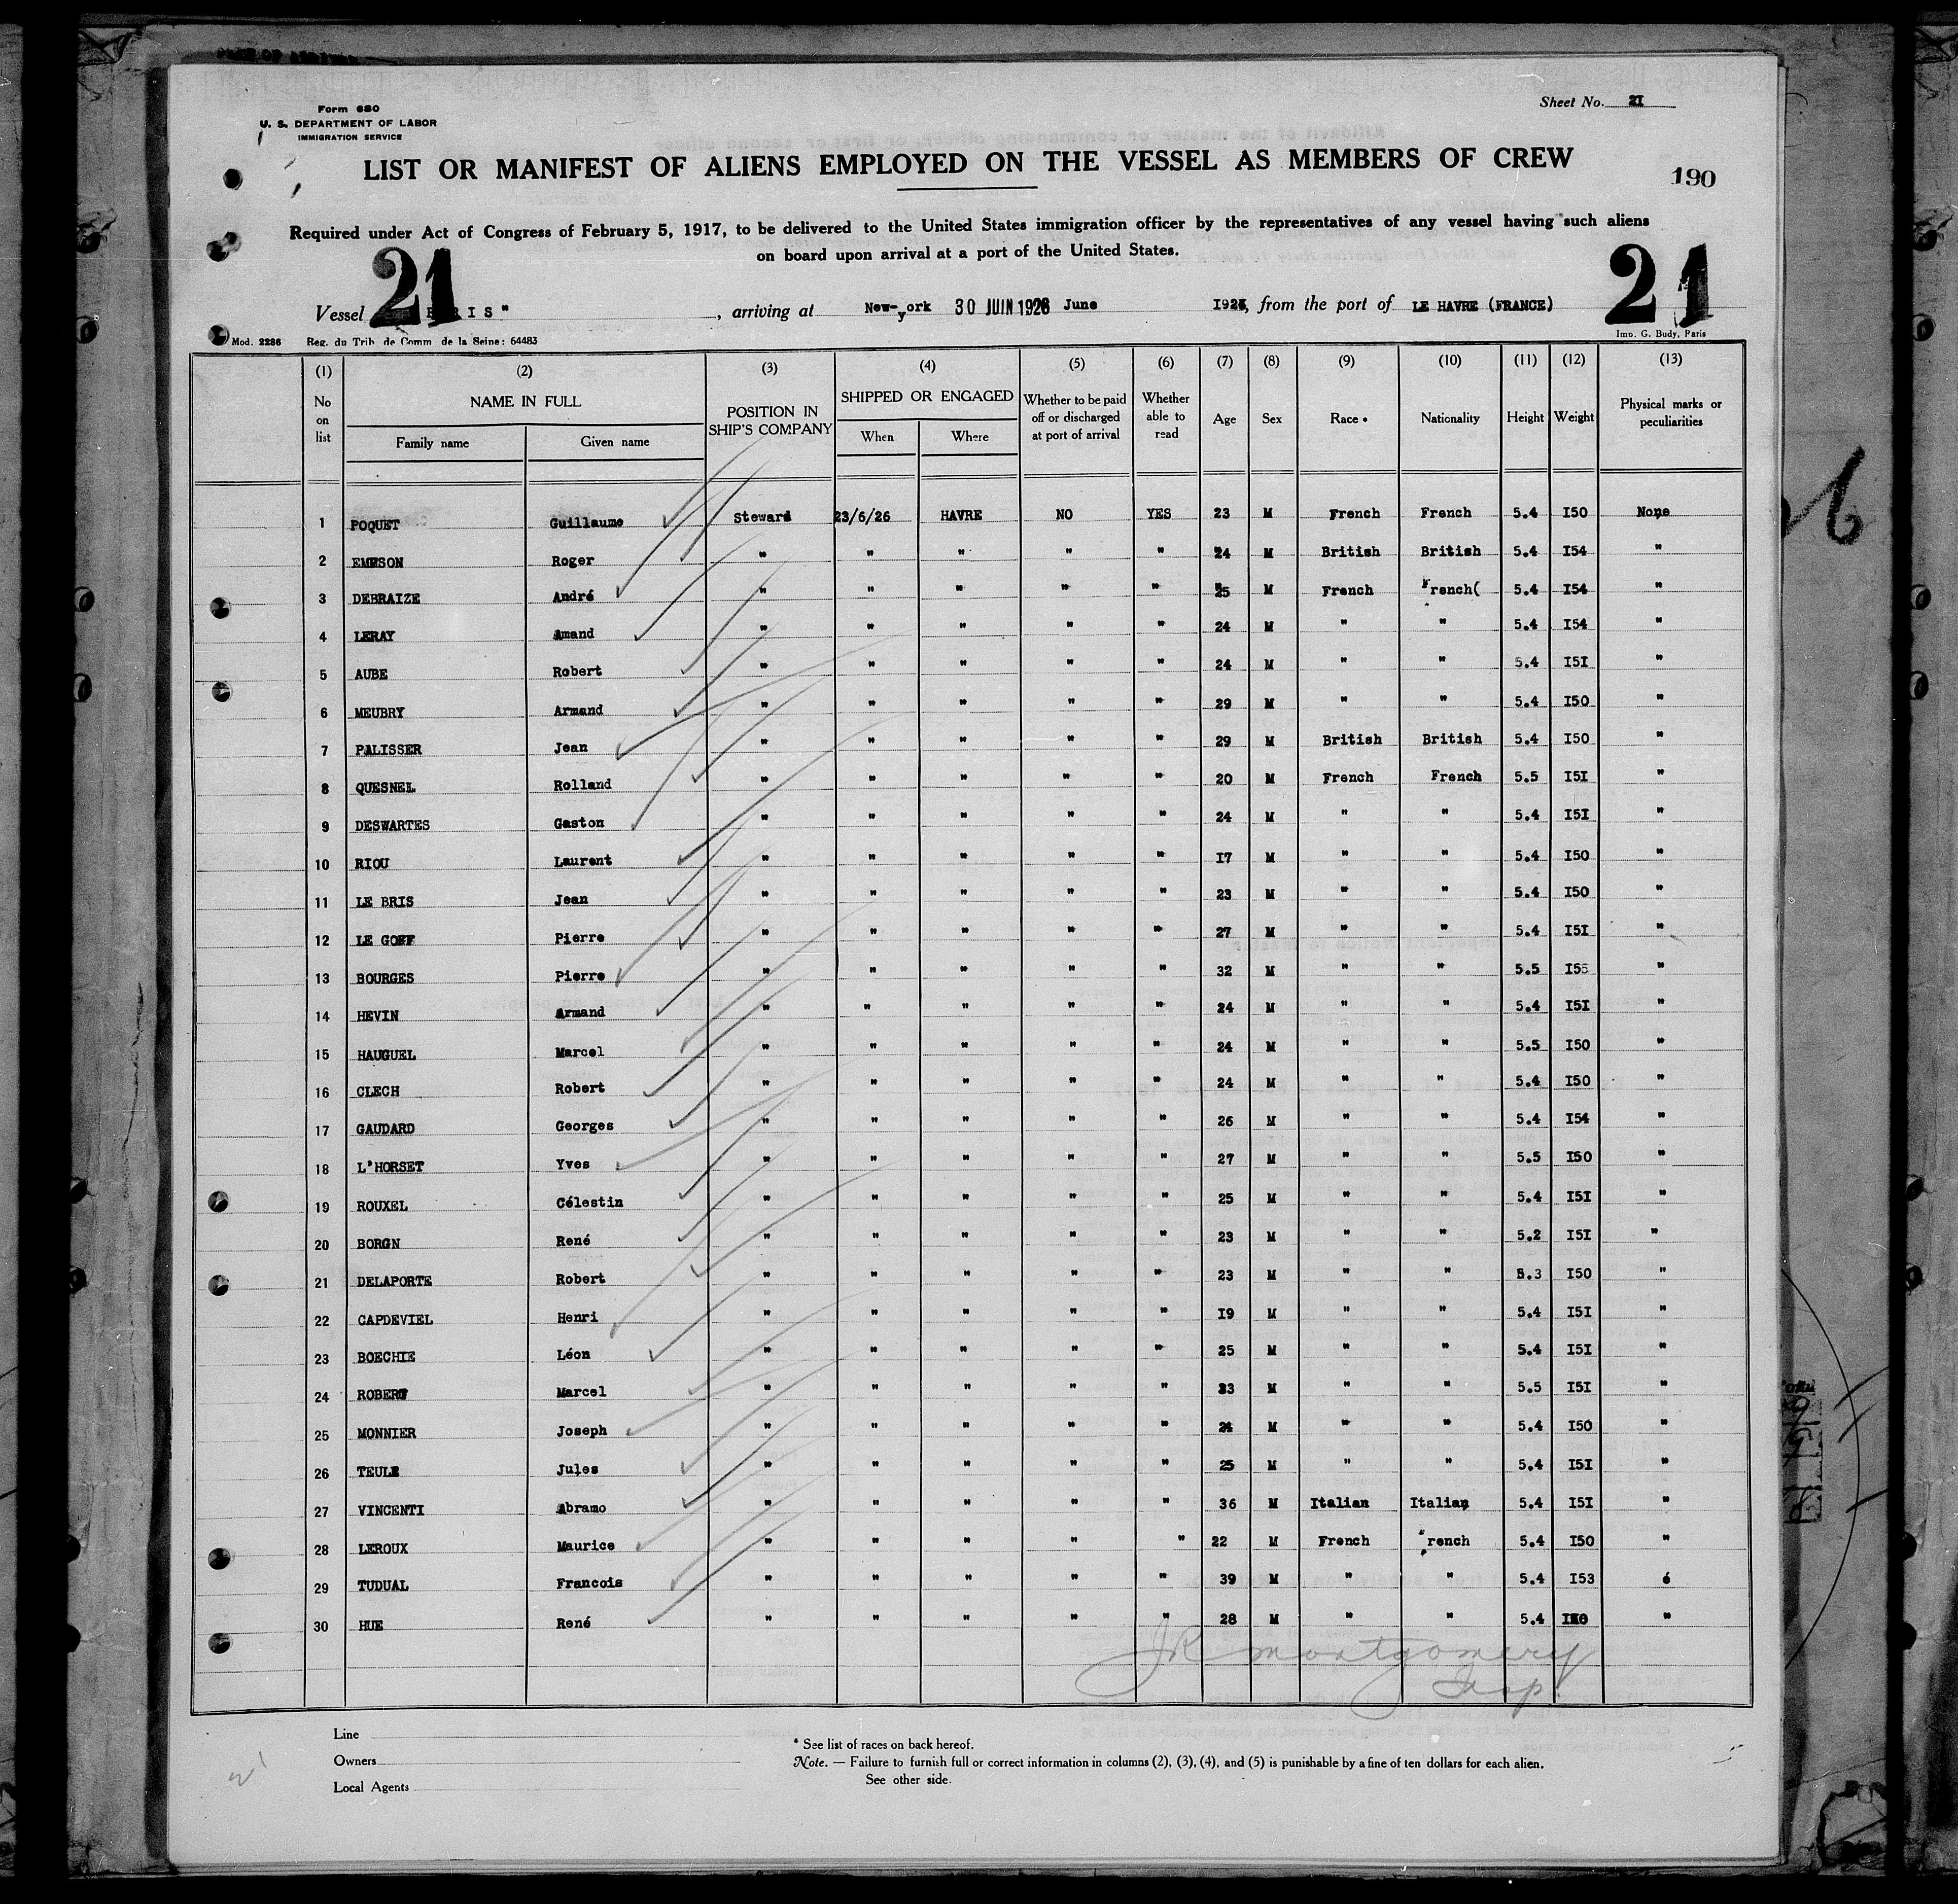 Form 680
U. S. DEPARTMENT OF LABOR
IMMIGRATION SERVICE
Sheet No. 21
LIST OR MANIFEST OF ALIENS EMPLOYED ON THE VESSEL AS MEMBERS OF CREW
190
Required under Act of Congress of February 5, 1917, to be delivered to the United States immigration officer by the representatives of any vessel having such aliens
on board upon arrival at a port of the United States.
21 21
Vessel RIS" , arriving at New-york 30 JUIN 1926 June 1926, from the port of LE HAVRE (FRANCE)
Mod. 2286 Reg. du Trib. de Comm. de la Seine: 64483 Imp. G. Budy, Paris
(1) (2) (3) (4) (5) (6) (7) (8) (9) (10) (11) (12) (13)
No on list NAME IN FULL POSITION IN SHIP'S COMPANY SHIPPED OR ENGAGED Whether to be paid off or discharged at port of arrival Whether able to read Age Sex Race * Nationality Height Weight Physical marks or peculiarities
Family name Given name When Where
1 POQUET Guillaume Steward 23/6/26 HAVRE NO YES 23 M French French 5.4 I50 None
2 EMESON Roger " " " " " 24 M British British 5.4 I54 "
3 DEBRAIZE André " " " " " 25 M French French( 5.4 I54 "
4 LERAY Amand " " " " " 24 M " " 5.4 I54 "
5 AUBE Robert " " " " " 24 M " " 5.4 I5I "
6 MEUBRY Armand " " " " " 29 M " " 5.4 I50 "
7 PALISSER Jean " " " " " 29 M British British 5.4 I50 "
8 QUESNEL Rolland " " " " " 20 M French French 5.5 I5I "
9 DESWARTES Gaston " " " " " 24 M " " 5.4 I5I "
10 RIOU Laurent " " " " " I7 M " " 5.4 I50 "
11 LE BRIS Jean " " " " " 23 M " " 5.4 I50 "
12 LE GOFF Pierre " " " " " 27 M " " 5.4 I5I "
13 BOURGES Pierre " " " " " 32 M " " 5.5 I55 "
14 HEVIN Armand " " " " " 24 M " " 5.4 I5I "
15 HAUGUEL Marcel " " " " " 24 M " " 5.5 I50 "
16 CLECH Robert " " " " " 24 M " " 5.4 I50 "
17 GAUDARD Georges " " " " " 26 M " " 5.4 I54 "
18 L'HORSET Yves " " " " " 27 M " " 5.5 I50 "
19 ROUXEL Célestin " " " " " 25 M " " 5.4 I5I "
20 BORGN René " " " " " 23 M " " 5.2 I5I "
21 DELAPORTE Robert " " " " " 23 M " " 5.3 I50 "
22 CAPDEVIEL Henri " " " " " I9 M " " 5.4 I5I "
23 BOECHIE Léon " " " " " 25 M " " 5.4 I5I "
24 ROBERT Marcel " " " " " 33 M " " 5.5 I5I "
25 MONNIER Joseph " " " " " 24 M " " 5.4 I50 "
26 TEULE Jules " " " " " 25 M " " 5.4 I5I "
27 VINCENTI Abramo " " " " " 36 M Italian Italian 5.4 I5I "
28 LEROUX Maurice " " " " " 22 M French French 5.4 I50 "
29 TUDUAL Francois " " " " " 39 M " " 5.4 I53 é
30 HUE René " " " " " 28 M " " 5.4 "
JR Montgomery
Insp.
Line
Owners
Local Agents
* See list of races on back hereof.
Note. — Failure to furnish full or correct information in columns (2), (3), (4), and (5) is punishable by a fine of ten dollars for each alien.
See other side.